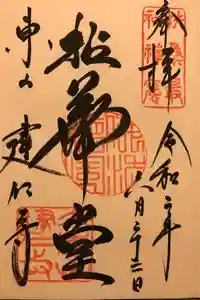 奉拝
令和二年
八月二十二日
拈華堂
東山 建仁寺